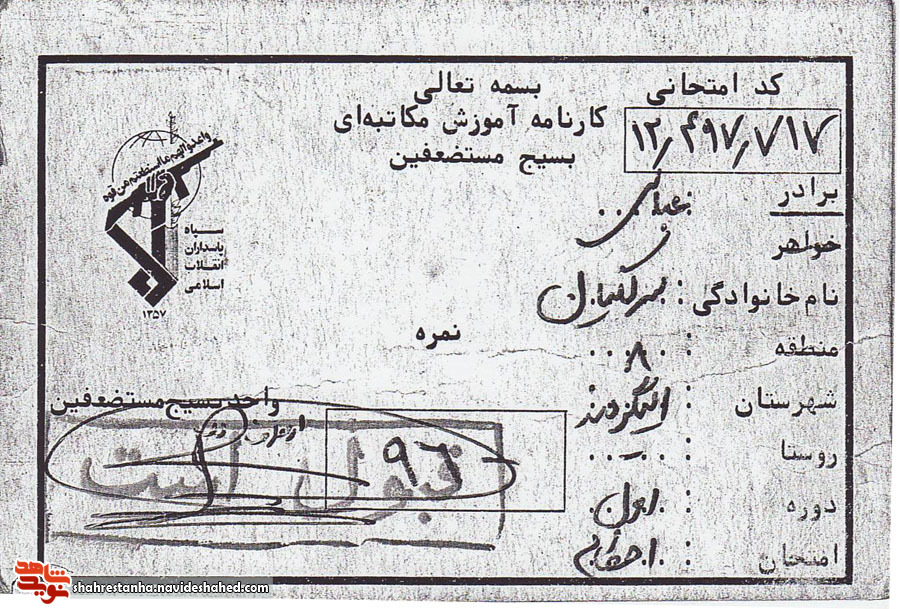 بسمه تعالی
کارنامه آموزش مکاتبه‌ای
بسیج مستضعفین
کد امتحانی
۱۲٫۴۹۷٫۷۱۷
واعدوا لهم ما استطعتم من قوه
سپاه
پاسداران
انقلاب
اسلامی
۱۳۵۷
برادر : عباس
خواهر
نام خانوادگی :
منطقه : ۸
شهرستان : الیگودرز
روستا : —
دوره : اول
امتحان :
نمره
۹۶
واحد بسیج مستضعفین
قبول است
شاهد
نوید
shahrestanha.navideshahed.com